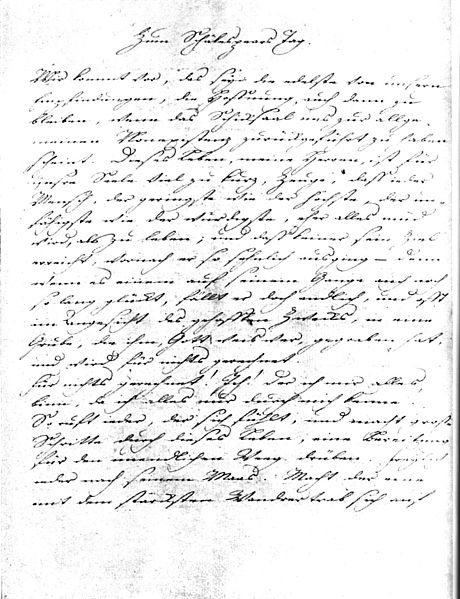 Zum Schäkespears Tag.
Mir kommt vor, das seye die edelste von unsern
Empfindungen, die Hoffnung, auch dann zu
bleiben, wenn das Schicksaal uns zur allge-
meinen Nonexistenz zurückgeführt zu haben
scheint. Dieses Leben, meine Herren, ist für
unsre Seele viel zu kurz, Zeuge, daß ieder
Mensch, der geringste wie der höchste, der un-
fähigste wie der würdigste, eher alles müd
wird, als zu leben; und daß keiner sein Ziel
erreicht, wornach er so sehnlich ausging – denn
wenn es einem auf seinem Gange auch noch
so lang glückt, fällt er doch endlich, und offt
im Angesicht des gehofften Zwecks, in eine
Grube, die ihm, Gott weis wer, gegraben hat,
und wird für nichts gerechnet.
Für nichts gerechnet! Ich! Der ich mir alles
binn, da ich alles nur durch mich kenne!
So ruft ieder, der sich fühlt, und macht grosse
Schritte durch dieses Leben, eine Bereitung
für den unendlichen Weeg drüben. Freylich
ieder nach seinem Maas. Macht der eine
mit dem stärcksten Wandrertrab sich auf